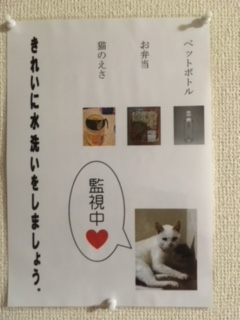 ペットボトル
お弁当
猫のえさ
きれいに水洗いをしましょう.
監視中♥